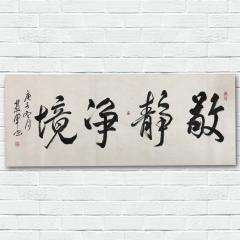 敬静净境
庚子冬月